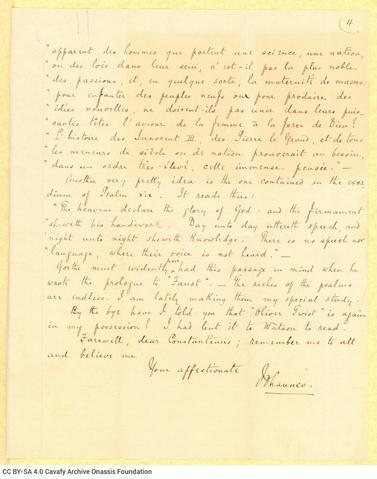 4
"apparent des hommes qui portent une science, une nation,
"ou des lois dans leur sein, n'est-il pas la plus noble
"des passions, et, en quelque sorte, la maternité de masses:
"pour enfanter des peuples neufs ou pour produire des
"idées nouvelles, ne doivent-ils pas unir dans leurs puis-
"santes têtes l'amour de la femme à la force de Dieu?
"L'histoire des Innocent III, des Pierre le Grand, et de tous
"les meneurs de siècle ou de nation prouverait au besoin,
"dans un ordre très élevé, cette immense pensée." —
Another very pretty idea is the one contained in the exor
dium of Psalm xix. It reads thus:
"The heavens declare the glory of God: and the firmament
"sheweth his handiwork. Day unto day uttereth speech, and
"night unto night sheweth knowledge. There is no speech nor
"language, where their voice is not heard." —
Goethe must evidently have had this passage in mind when he
wrote the prologue to "Faust". — The riches of the psalms
are endless. I am lately making them my special study.
By the bye have I told you that "Oliver Twist" is again
in my possession? I had lent it to Watson to read.
Farewell, dear Constantinus; remember me to all
and believe me
Your affectionate
CC BY-SA 4.0 Cavafy Archive Onassis Foundation